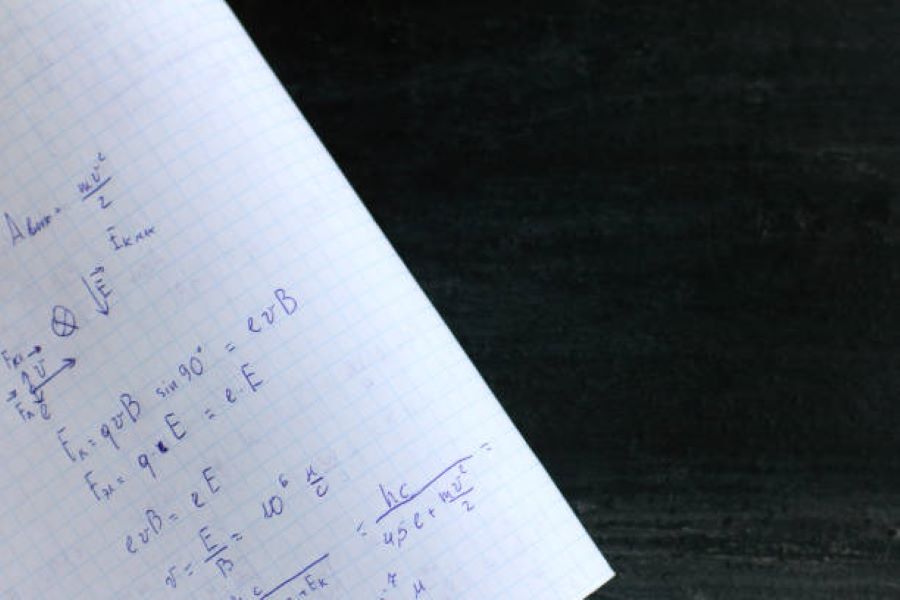 Aвых = mv²/2
Eкин
E
v
e
Fл = qvB sin 90° = evB
Fэл = q · E = e · E
evB = eE
v = E/B = 10⁶ м/с
= hc/(4,5e + mv²/2) =
+ Eк
⁻⁷ м